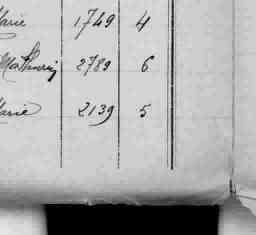 Marie 1749 4
Mathurin 2789 6
Marie 2139 5